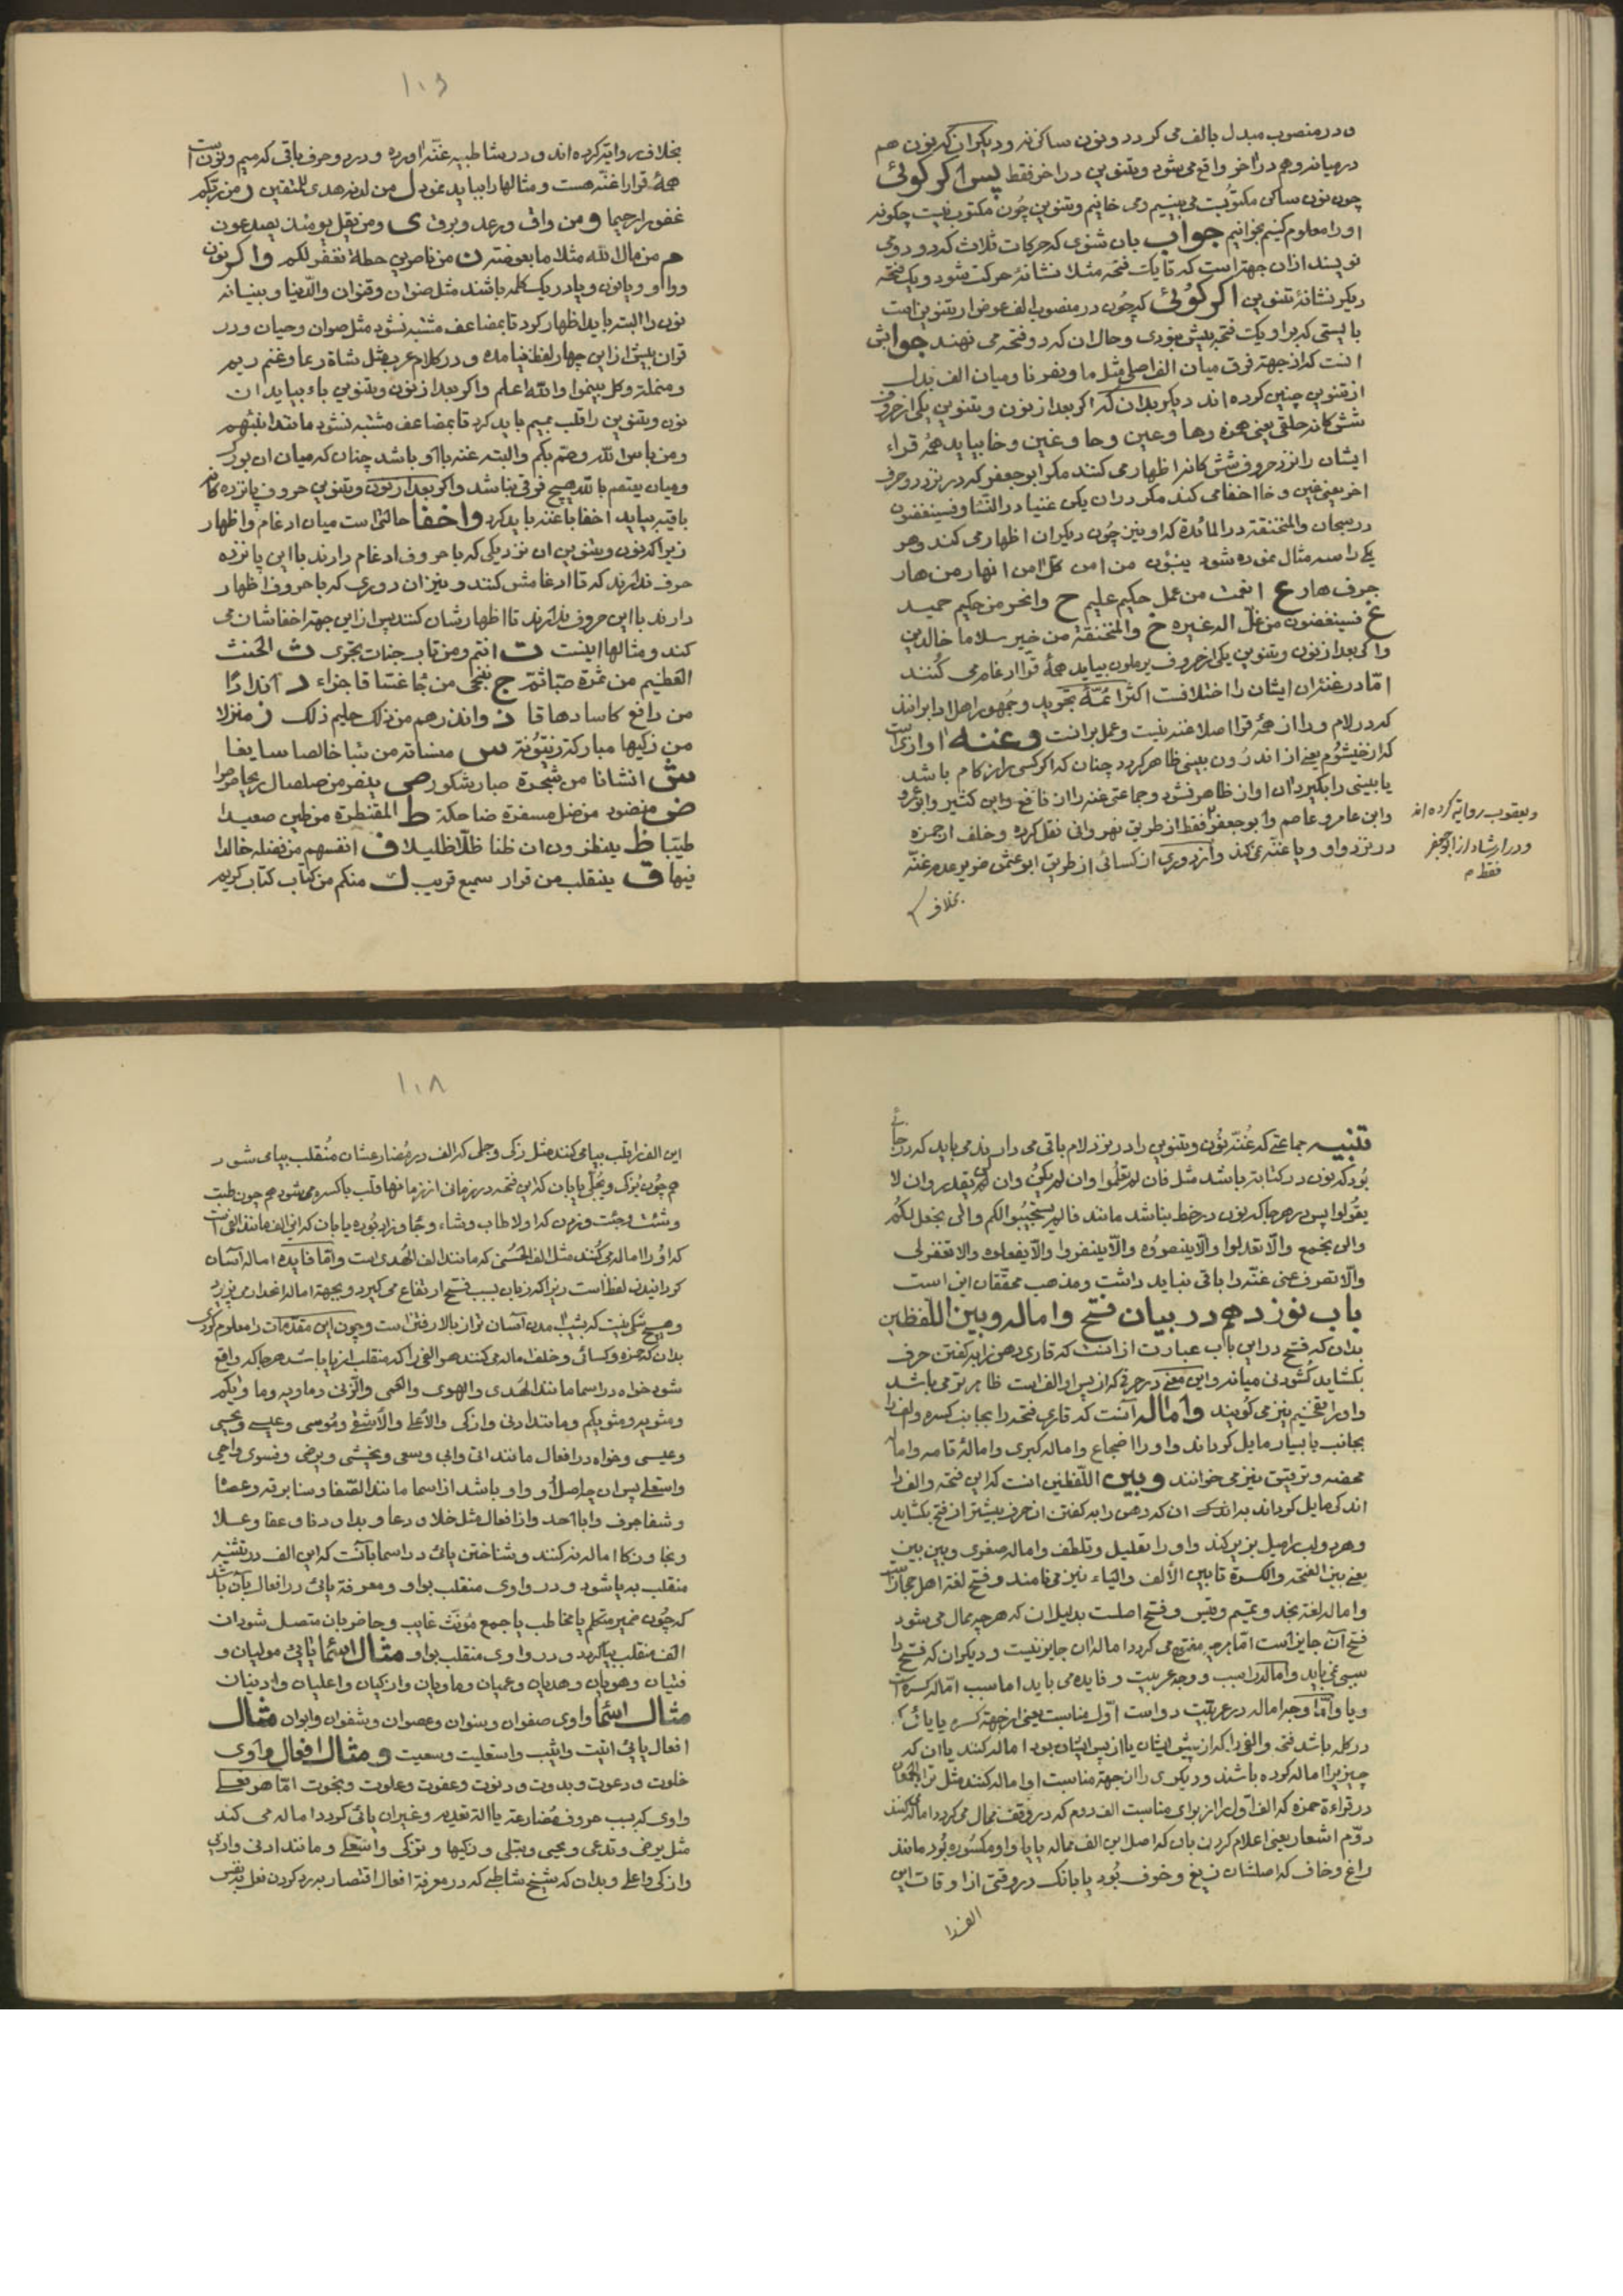 و در منصوب مبدل بالف می کردد و نون ساکن نه و دیکر ان که نون هم
در میانه و هم در اخر واقع می شود و تنوین در اخر فقط پس اکر کوئی
چون نون ساکن مکتوبست می بینیم و می خانیم و تنوین چون مکتوب نیست چکونه
او را معلوم کنیم بخوانیم جواب بان شنوی که حرکات ثلاث که دو دو می
نویسند ازان جهة است که تا یک فتحه مثلا نشانهٔ حرکت شود و یک فتحه
دیکر نشانهٔ تنوین اکر کوئی که چون در منصوب الف عوض از تنوین است
بایستی که برا و یک فتحه بیش نبودی و حال ان که دو فتحه می نهند جوابش
انست که از جهة فرق میان الف اصلی مثل ما و نفرنا و میان الف بدل
از تنوین چنین کرده اند دیکر بدان که اکر بعد از نون و تنوین یکی از حروف
شش کانه حلقی یعنی همزه و ها و عین و حا و غین و خا بیاید همهٔ قراء
ایشان را نزد حروف شش کانه اظهار می کنند مکر ابو جعفر که در نزد دو حرف
اخر یعنی غین و خا اخفا می کند مکر در ان یکن غنیا در النسا و فسینغضون
در سبحان والمنخنقة در المائدة که او نیز چون دیکران اظهار می کند و هر
یکی را سه مثال نموده شود ینئون من امن کل امن انهار من هار
جرف هار ع انعمت من عمل حکیم علیم ح وانحر من حکیم حمید
غ فسینغضون من غل اله غیره خ والمنخنقة من خیر سلاما خالدین
واکر بعد از نون و تنوین یکی از حروف یرملون بیاید همهٔ قرا ادغام می کنند
اما در غنهٔ ان ایشان را اختلافست اکثر ائمهٔ تجوید و جمهور اهل ادا برانند
که در لام و را از همهٔ قرا اصلا غنه نیست و عمل برانست و غنه اوازیست
که از خیشوم یعنی از اندرون بینی ظاهر کردد چنان که اکر کسی را زکام باشد
یا بینی را بکیرد ان اواز ظاهر نشود و جماعتی غنه را از نافع و ابن کثیر و ابو عمرو
و ابن عامر و عاصم و ابو جعفر فقط از طریق نهروانی نقل کرده و خلف از حمزه
در نزد واو و یا غنه نمی کند و از دوری از کسائی از طریق ابو عثمن ضریر عدم غنه
بخلاف
و یعقوب روایة کرده اند
و در ارشاد از ابو جعفر
فقط م
۱۰۶
بخلاف روایة کرده اند و در شاطبیه غنه اورده و در دو حرف باقی که میم و نونست
همهٔ قرا را غنه هست و مثالها را بباید نمود ل من لدنه هدی للمتقین ر من ربکم
غفورا رحیما و من واق و رعد و برق ی ومن یقل یومئذ یصدعون
م من مال الله مثلا ما بعوضة ن من ناصرین حطة نغفر لکم و اکر نون
و واو و یا نون و یا در یک کلمه باشند مثل صنوان و قنوان والدنیا و بنیانه
نون را البته باید اظهار کرد تا بمضاعف مشتبه نشود مثل صوان و حیان و در
قران بیش از این چهار لفظ نیامده و در کلام عرب مثل شاة زنما و غنم زیم
و متملة و کل بینوا والله اعلم و اکر بعد از نون و تنوین باء بیاید ان
نون و تنوین را قلب بمیم باید کرد تا بمضاعف مشتبه نشود مانند انبئهم
ومن باس الله وصم بکم و البته غنه با او باشد چنان که میان ان بورک
و میان یعتصم بالله هیچ فرقی نباشد و اکر بعد از نون و تنوین حروف پانزده کانه
باقیه بیاید اخفا با غنه باید کرد و اخفا حالتی است میان ادغام و اظهار
زیرا که نون و تنوین ان نزدیکی که با حروف ادغام دارند با این پانزده
حرف ندارند که تا ادغامش کنند و نیز ان دوری که با حروف اظهار
دارند با این حروف ندارند تا اظهارشان کنند پس از این جهة اخفاشان می
کنند و مثالها اینست ت انتم ومن تاب جنات تجری ث الحنث
العظیم من ثمرة ج ننجی من جا غساقا جزاء د اندادا
من دافع کاسا دهاقا ذ وانذرهم من ذلک حلیم ذلک ز منزلا
من زکیها مبارکة زیتونة س منساته من سبا خالصا سایغا
ش انشانا من شجرة صبار شکور ص ینصر من صلصال ریحا صرصرا
ض منضود من ضل مسفرة ضاحکة ط المقنطرة من طین صعیدا
طیبا ظ ینظرون ان ظنا ظلا ظلیلا ف انفسهم من فضله خالدا
فیها ق ینقلب من قرار سمیع قریب ک منکم من کتاب کتاب کریم
تنبیه جماعتی که غنهٔ نون و تنوین را در نزد لام باقی می دارند می باید که در جائی
بود که نون در کتابة باشد مثل فان لم تفعلوا وان لم یکن وان لن یقدر وان لا
یقولوا پس در هر جا که نون در خط نباشد مانند فالم یستجیبوا لکم والن نجعل لکم
والن نجمع والا تعدلوا والا ینصروه والا ینفروا والا یفعلوه والا تغفر لی
والا تصرف عنی غنه را باقی نباید داشت و مذهب محققان این است
باب نوزدهم در بیان فتح و اماله و بین اللفظین
بدان که فتح در این باب عبارت از انست که قاری دهن را بکفتن حرف
بکشاید کشودنی میانه و این معنی در حرفی که از پس او الف است ظاهر تر می باشد
و او را تفخیم نیز می کویند و اماله انست که قاری فتحه را بجانب کسره و الف را
بجانب یا بسیار مایل کرداند و او را اضجاع و اماله کبری و امالهٔ تامه و امالهٔ
محضه و ترقیق نیز می خوانند و بین اللفظین انست که این فتحه والف را
اندکی مایل کرداند بدانک ان که دهن را بکفتن ان حرف بیشتر از فتح بکشاید
و هر دو لب را میل بزیر کند و او را تقلیل و تلطف و اماله صغری و بین بین
یعنی بین الفتحة والکسرة تا بین الالف والیاء نیز می نامند و فتح لغة اهل حجاز است
و اماله لغة نجد و تمیم و قیس و فتح اصلست بدلیل ان که هر چه ممال می شود
فتح ان جایز است اما هر چه مفتوح می کردد امالهٔ ان جایز نیست و دیکر ان که فتح را
سببی نمی باید و اماله را سبب و وجه عربیت و فایده می باید اما سبب اماله کسره است
و یا و اما وجه اماله در عربیت دو است اول مناسبت یعنی از جهة کسره یا یائی که
در کلمه باشد فتحه و الفی را که از پیش ایشان یا از پس ایشان بود اماله کنند یا ان که
چیزی را اماله کرده باشند و دیکری را از جهة مناسبت او اماله کنند مثل تراءا الجمعان
در قراءة حمزه که الف اول را از برای مناسبت الف دوم که در وقف ممال می کردد اماله می کنند
دوم اشعار یعنی اعلام کردن بان که اصل این الف ممال یا یا واو مکسوره بود مانند
زاغ و خاف که اصلشان زیغ و خوف بود یا بانک در وقتی از اوقات این
الف را
۱۰۸
این الف را قلب بیا می کنند مثل زکی و جلی که الف در مضارعشان منقلب بیا می شود
هم چون یزکی و یجلی یا بان که این فتحه در زمانی از زمانها قلب با کسره می شود هم چون طبت
و شئت و جئت و زدن که اولا طاب و شاء و جاء و زاد بوده یا بان که این الف مانند الفی است
که او را اماله می کنند مثل الف الحسنی که مانند الف الهدی است و اما فایدهٔ اماله آسان
کردانیدن لفظ است زیرا که زبان بسبب فتح ارتفاع می کیرد و بجهة اماله انحدار می پذیرد
و هیچ شکی نیست که بشیب امدن آسان تر از بالا رفتن است و چون این مقدمات را معلوم کردی
بدان که حمزه و کسائی و خلف اماله می کنند هر الفی را که منقلب از یا باشد هر جا که واقع
شود خواه در اسما مانند الهدی والهوی والعمی والزنی و ماویه و ماویکم
و مثویه و مثویکم و مانند ادنی وازکی والاعلی والاشقی وموسی وعیسی ویحیی
وعیسی و خواه در افعال مانند اتی وابی وسعی ویخشی ویرضی وفسوی واحیی
واستعلی پس ان چه اصل او واو باشد از اسما مانند الصفا وسنا برقه وعصا
وشفا جرف وابا احد و از افعال مثل خلا ودعا وبدا ودنا وعفا وعلا
ونجا وزکا اماله نه کنند و شناختن یائی در اسما بانست که این الف در تثنیه
منقلب به یا شود و در واوی منقلب بواو و معرفة یائی در افعال بان باشد
که چون ضمیر متکلم یا مخاطب یا جمع مونث غایب و حاضر بان متصل شود ان
الف منقلب بیا کردد و در واوی منقلب بواو مثال اسماء یائی مولیان و
فتیان وهویان وهدیان وعمیان وماویان وازکیان واعلیان وادنیان
مثال اسماء واوی صفوان وسنوان وعصوان وشفوان وابوان مثال
افعال یائی اتیت وابیت واستعلیت وسعیت و مثال افعال واوی
خلوت ودعوت وبدوت ودنوت وعفوت وعلوت ونجوت اما هر فعلی
واوی که بسبب حروف مضارعه یا الة تعدیه و غیر ان یائی کردد اماله می کنند
مثل یرضی وتدعی ویحیی وتبلی وزکیها وتزکی واستعلی و مانند ادنی واربی
وازکی واعلی و بدان که شیخ شاطبی که در معرفة افعال اقتصار برد کردن فعل بنفس